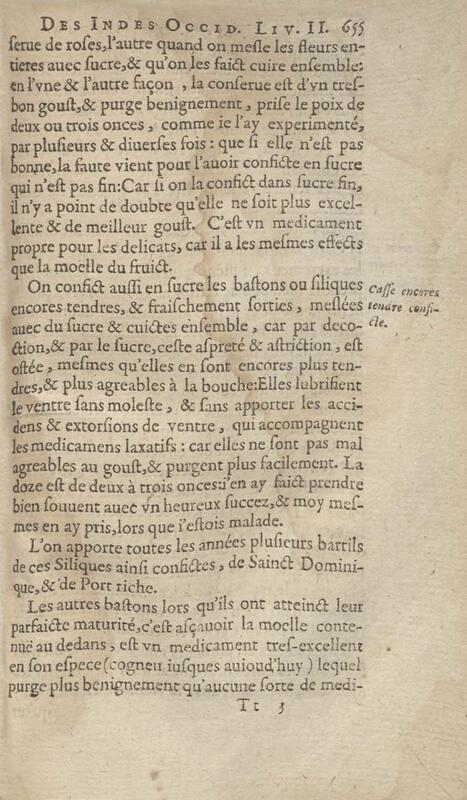 DES INDES OCCID. LIV. II. 655
ſerue de roſes, l'autre quand on meſle les fleurs en-
tieres auec ſucre, & qu'on les faict cuire enſemble:
en l'vne & l'autre façon, la conſerue eſt d'vn treſ-
bon gouſt, & purge benignement, priſe le poix de
deux ou trois onces, comme ie l'ay experimenté,
par pluſieurs & diuerſes fois: que ſi elle n'eſt pas
bonne, la faute vient pour l'auoir conficte en ſucre
qui n'eſt pas fin: Car ſi on la confict dans ſucre fin,
il n'y a point de doubte qu'elle ne ſoit plus excel-
lente & de meilleur gouſt. C'eſt vn medicament
propre pour les delicats, car il a les meſmes effects
que la moelle du fruict.
On confict auſſi en ſucre les baſtons ou ſiliques
encores tendres, & fraiſchement ſorties, meſlées
auec du ſucre & cuictes enſemble, car par deco-
ction, & par le ſucre, ceſte aſpreté & aſtriction, eſt
oſtée, meſmes qu'elles en ſont encores plus ten-
dres, & plus agreables à la bouche: Elles lubrifient
le ventre ſans moleſte, & ſans apporter les acci-
dens & extorſions de ventre, qui accompagnent
les medicamens laxatifs: car elles ne ſont pas mal
agreables au gouſt, & purgent plus facilement. La
doze eſt de deux à trois onces: i'en ay faict prendre
bien ſouuent auec vn heureux ſuccez, & moy meſ-
mes en ay pris, lors que i'eſtois malade.
L'on apporte toutes les années pluſieurs barrils
de ces Siliques ainſi confictes, de Sainct Domini-
que, & de Port riche.
Les autres baſtons lors qu'ils ont atteinct leur
parfaicte maturité, c'eſt aſçauoir la moelle conte-
nuë au dedans, eſt vn medicament treſ-excellent
en ſon eſpece (cogneu iuſques auiourd'huy) lequel
purge plus benignement qu'aucune ſorte de medi-
Tt 3
Caſſe encores
tendre confi-
cte.